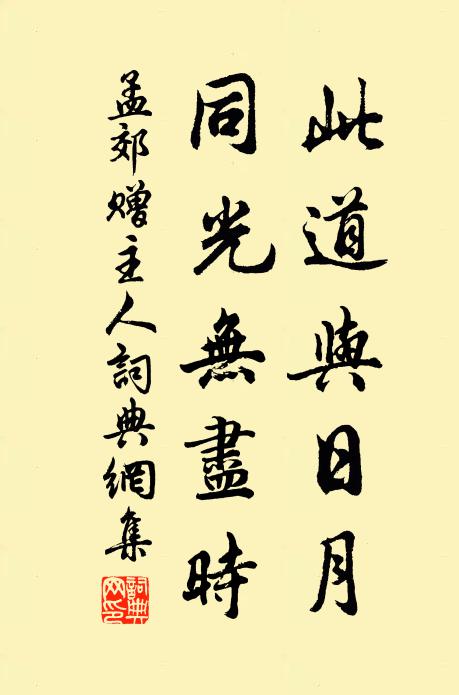 此道與日月
同光無盡時
孟郊贈主人詞典網集
詞典網印